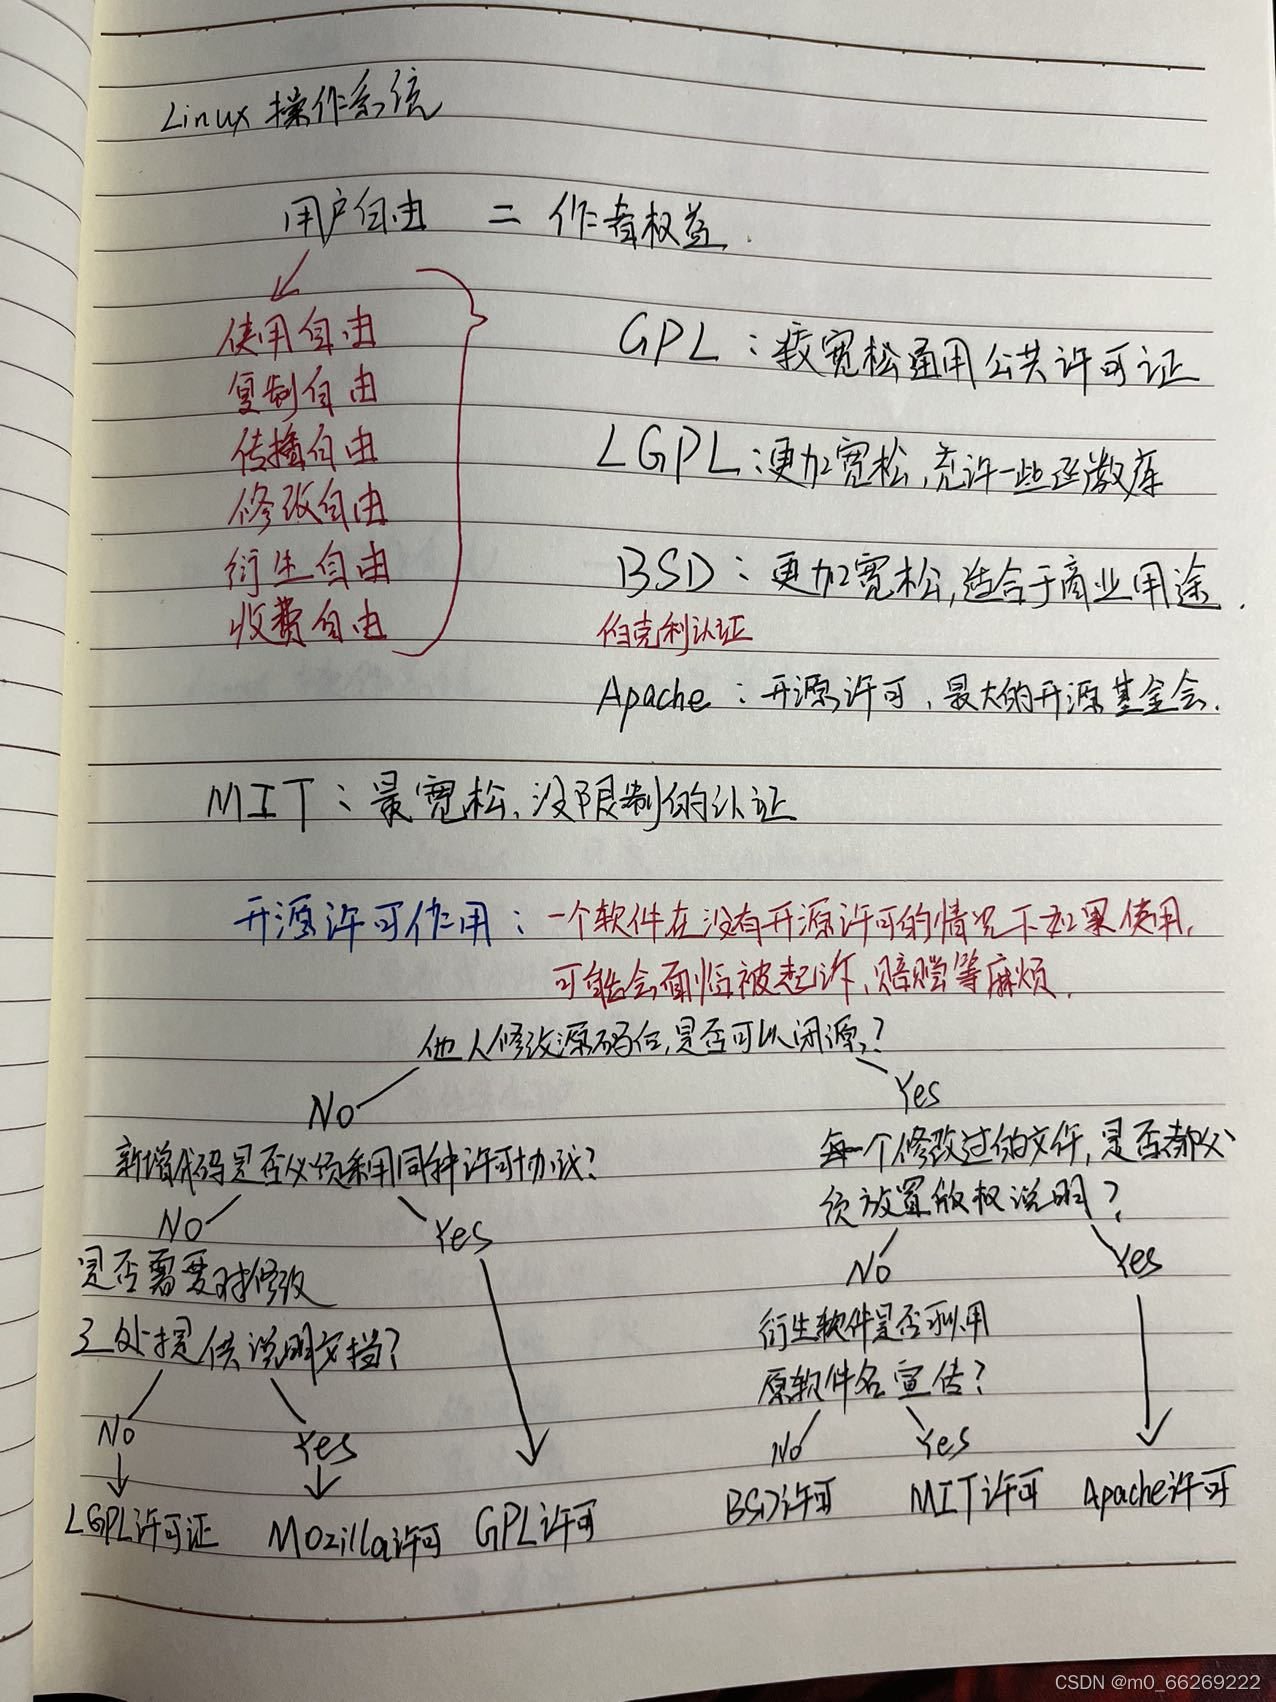 Linux 操作系统
用户自由 = 作者权益.
使用自由
复制自由
传播自由
修改自由
衍生自由
收费自由
GPL：较宽松通用公共许可证
LGPL：更加宽松,允许一些函数库
BSD：更加宽松,适合于商业用途.
伯克利认证
Apache：开源许可,最大的开源基金会.
MIT：最宽松,没限制的认证
开源许可作用：一个软件在没有开源许可的情况下如果使用,
可能会面临被起诉,赔偿等麻烦.
他人修改源码后,是否可以闭源?
No
Yes
新增代码是否必须采用同种许可协议?
No
Yes
是否需要对修改
之处提供说明文档?
No
Yes
LGPL许可证
Mozilla许可
GPL许可
每一个修改过的文件,是否都必
须放置版权说明?
No
Yes
衍生软件是否利用
原软件名宣传?
No
Yes
BSD许可
MIT许可
Apache许可
CSDN @m0_66269222